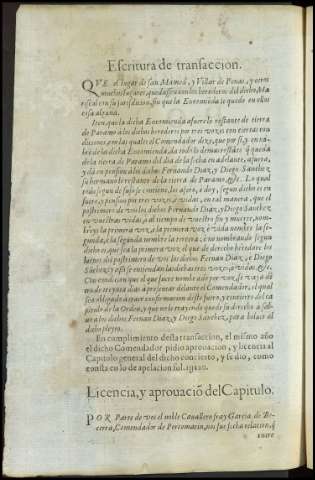 Escritura de transaccion.
QVE el lugar de san Mamed, y Villar de Penas, y otros
muchos lugares, quedassen con los herederos del dicho Ma
riscal con su jurisdicion, sin que la Encomienda se quede en ellos
cosa alguna.
Iten, que la dicha Encomienda afuere lo restante de tierra
de Paramo a los dichos herederos por tres vozes con ciertas con
diciones, en las quales el Comendador dize, que por si, y en
de la dicha Encomienda, da todo lo demas restante q̃ queda
de la tierra de Paramo del dia de la fecha en adelante, afuera,
y dà en pension a los dichos Fernando Diaz, y Diego Sanchez
su hermano lo restante de la tierra de Paramo, &c. Lo qual
todo segun de suso se contiene, los aforo, e doy, segun dicho es en
fuero, y pension por tres vozes, o vidas, en tal manera, que el
postrimero de vos los dichos Fernando Diaz, y Diego Sanchez
en vuestras vidas, o al tiempo de vuestro fin y muerte, nom-
breys la primera voz, a la primera voz, e vida nombre la se-
gunda, e la segunda nombre la tercera: e no nombrando segun
dicho es, que sea la primera voz, el que de derecho heredare los
bienes del postrimero de vos los dichos Fernan Diaz, e Diego
Sãchez y assi se entiendan las dichas tres vozes, o vidas, &c.
Con condicion que el que fuere nombrado por voz, se vaya dẽ
tro de treynta dias a presentar delante el Comendador, el qual
sea obligado de traer confirmacion deste fuero, y consierto del ca
pitulo de la Orden, y que no le trayendo quede su derecho a sal-
uo a los dichos Fernan Diaz, y Diego Sanchez, para boluer al
dicho pleyto.
En cumplimiento desta transaccion, el mismo año
el dicho Comendador pidio aprouacion, y licencia al
Capitulo general del dicho concierto, y se dio, como
consta en lo de apelacion fol.
Licencia, y aprouaciõ del Capitulo.
POR Parte de vos el noble Cauallero frey Garcia de Be-
cerra, Comendador de Portomarin, nos fue fecha relacion, q̃
entre